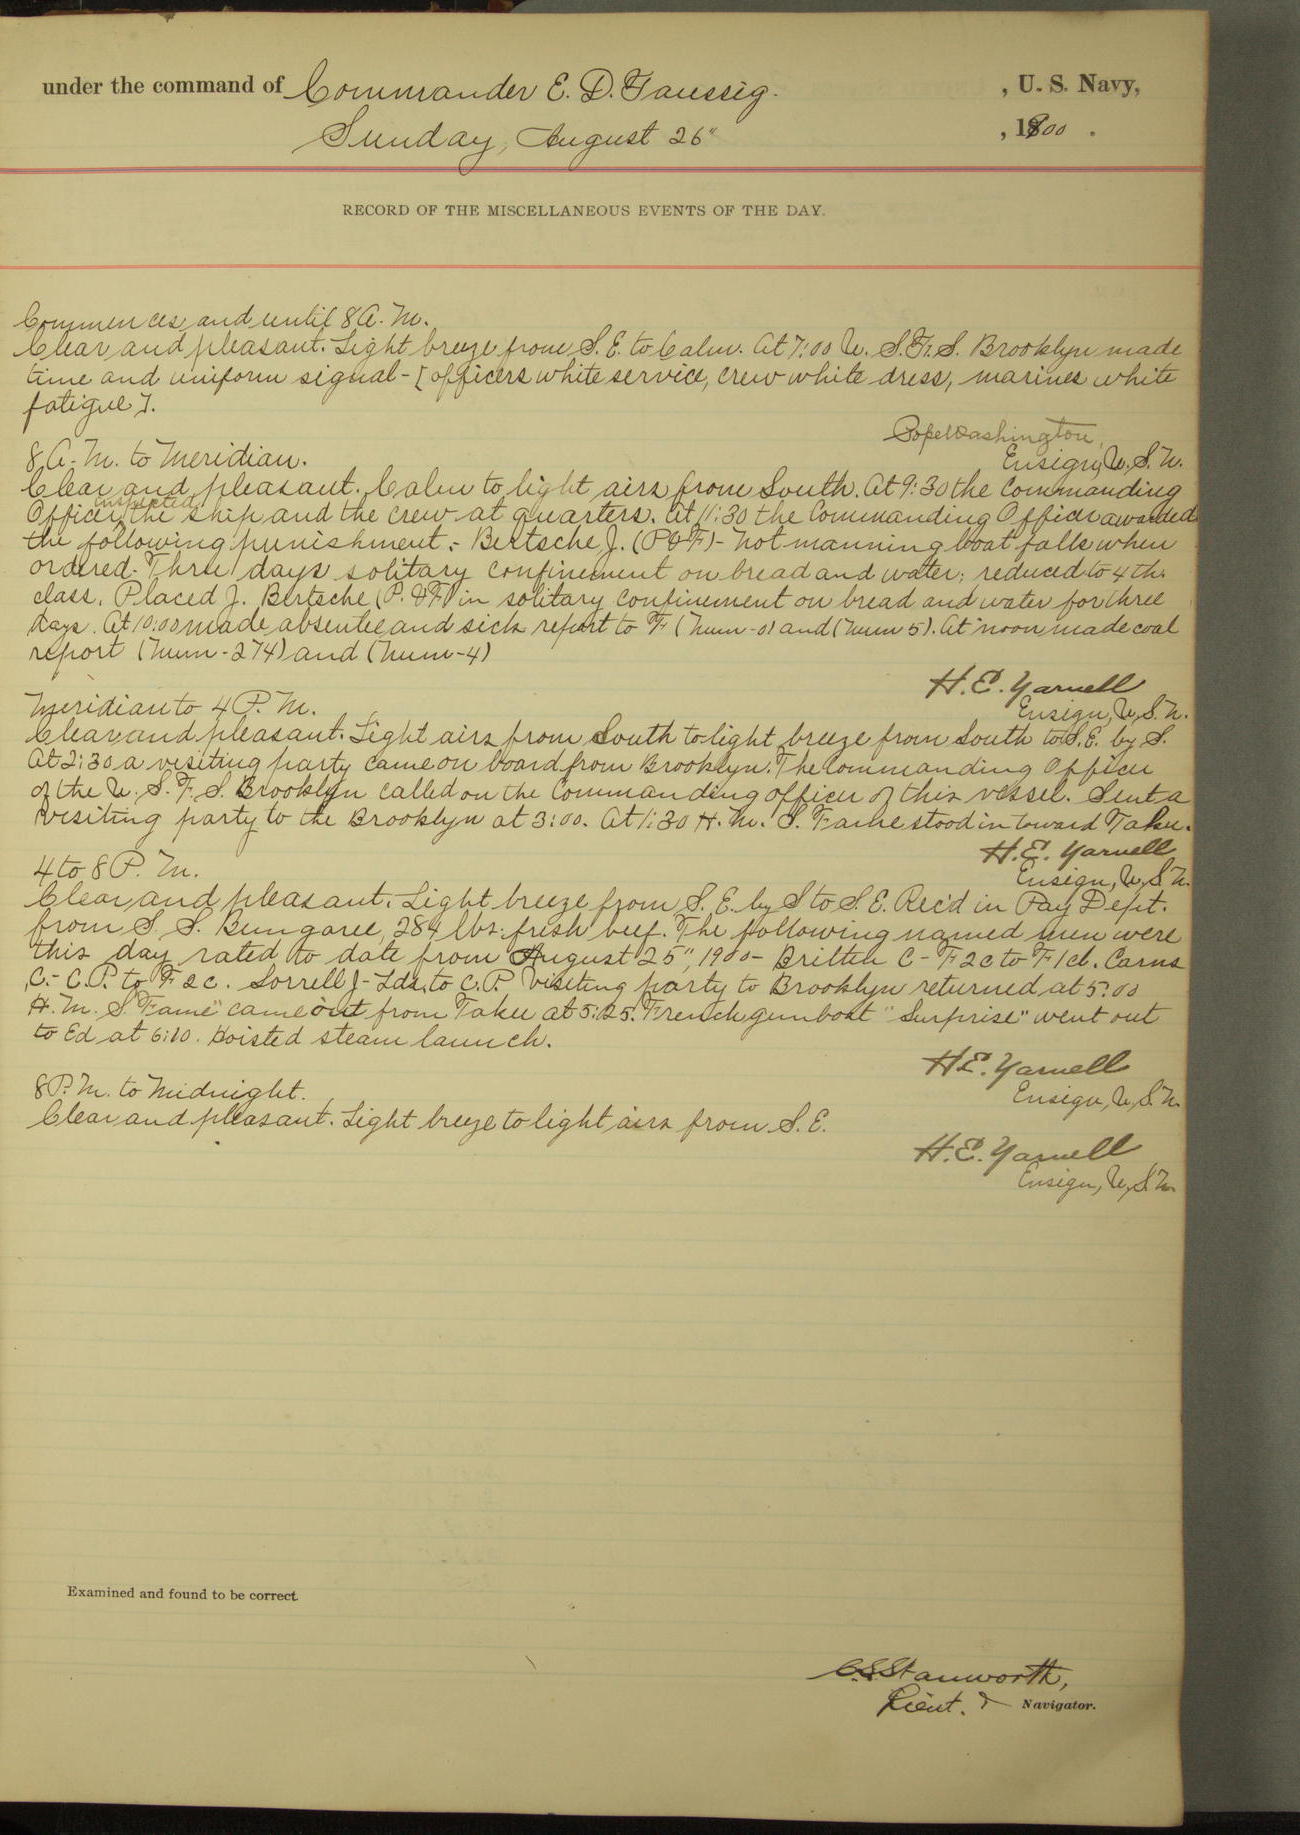 under the command of Commander E. D. Taussig. , U. S. Navy,
Sunday, August 26" , 1900 .
RECORD OF THE MISCELLANEOUS EVENTS OF THE DAY.
Commences and until 8 A. M.
Clear and pleasant. Light breeze from S. E. to Calm. At 7:00 U. S. F. S. Brooklyn made
time and uniform signal - [officers white service, crew white dress, marines white
fatigue].
Pope Washington,
Ensign, U. S. N.
8 A. M. to Meridian.
Clear and pleasant. Calm to light airs from South. At 9:30 the Commanding
inspected
Officer the ship and the crew at quarters. At 11:30 the Commanding Officer awarded
the following punishment:- Bertsche, J. (P&F) - Not manning boat falls when
ordered. Three days solitary confinement on bread and water; reduced to 4th.
class. Placed J. Bertsche (P. & F) in solitary confinement on bread and water for three
days. At 10:00 made absentee and sick report to F (Num-0) and (Num 5). At noon made coal
report (Num-274) and (Num-4)
H. E. Yarnell
Ensign, U. S. N.
Meridian to 4 P. M.
Clear and pleasant. Light airs from South to light breeze from South to S. E. by S.
At 2:30 a visiting party came on board from Brooklyn. The Commanding Officer
of the U. S. F. S. Brooklyn called on the Commanding officer of this vessel. Sent a
visiting party to the Brooklyn at 3:00. At 1:30 H. M. S. Fame stood in toward Taku.
H. E. Yarnell
Ensign, U. S. N.
4 to 8 P. M.
Clear and pleasant. Light breeze from S. E. by S to S. E. Rec'd in Pay Dept.
from S. S. Bungaree, 284 lbs. fresh beef. The following named men were
this day rated to date from August 25", 1900 - Britten C - F 2c to F 1cl. Carns
C. - C. P. to F 2 c. Sorrell J - Lds. to C. P. Visiting party to Brooklyn returned at 5:00
H. M. S. "Fame" came out from Taku at 5:25. French gunboat "Surprise" went out
to Ed at 6:10. Hoisted steam launch.
H. E. Yarnell
Ensign, U. S. N.
8 P. M. to Midnight.
Clear and pleasant. Light breeze to light airs from S. E.
H. E. Yarnell
Ensign, U. S. N.
Examined and found to be correct.
C. S. Stanworth,
Lieut. & Navigator.